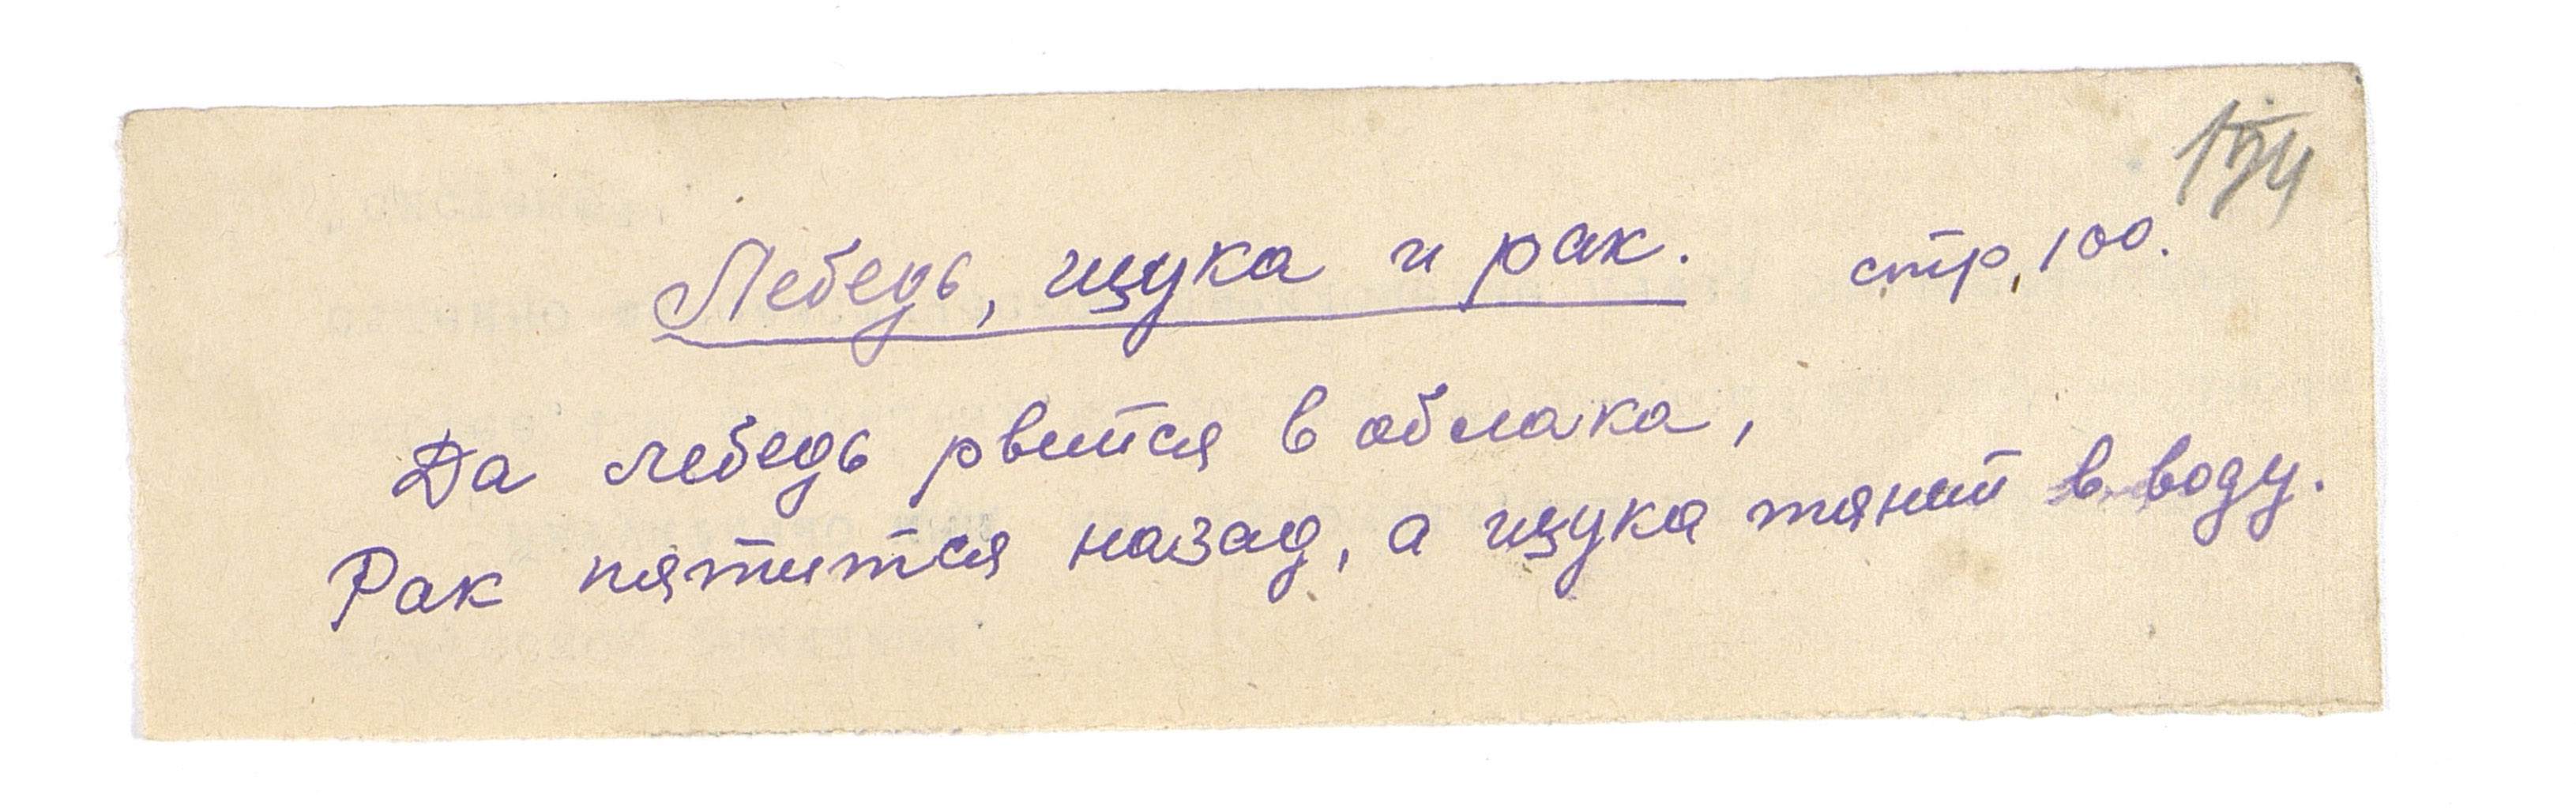 Лебедь, щука и рак. стр. 100.
Да лебедь рвется в облака,
Рак пятится назад, а щука тянет в воду.